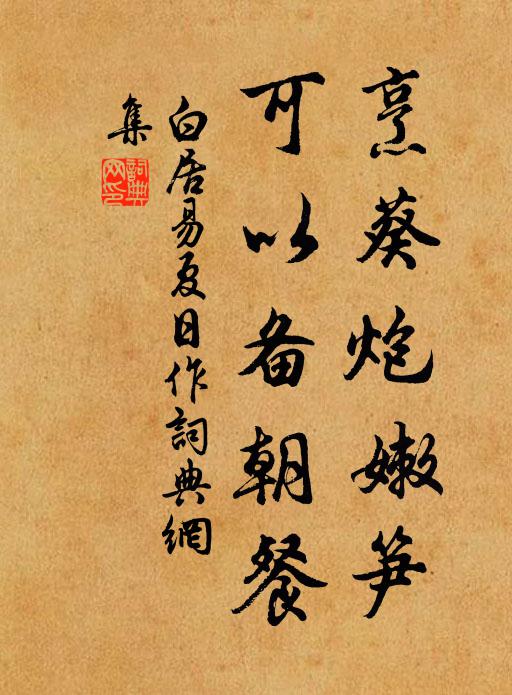 烹葵炮嫩笋
可以备朝餐
白居易夏日作詞典網
集
詞典
网印